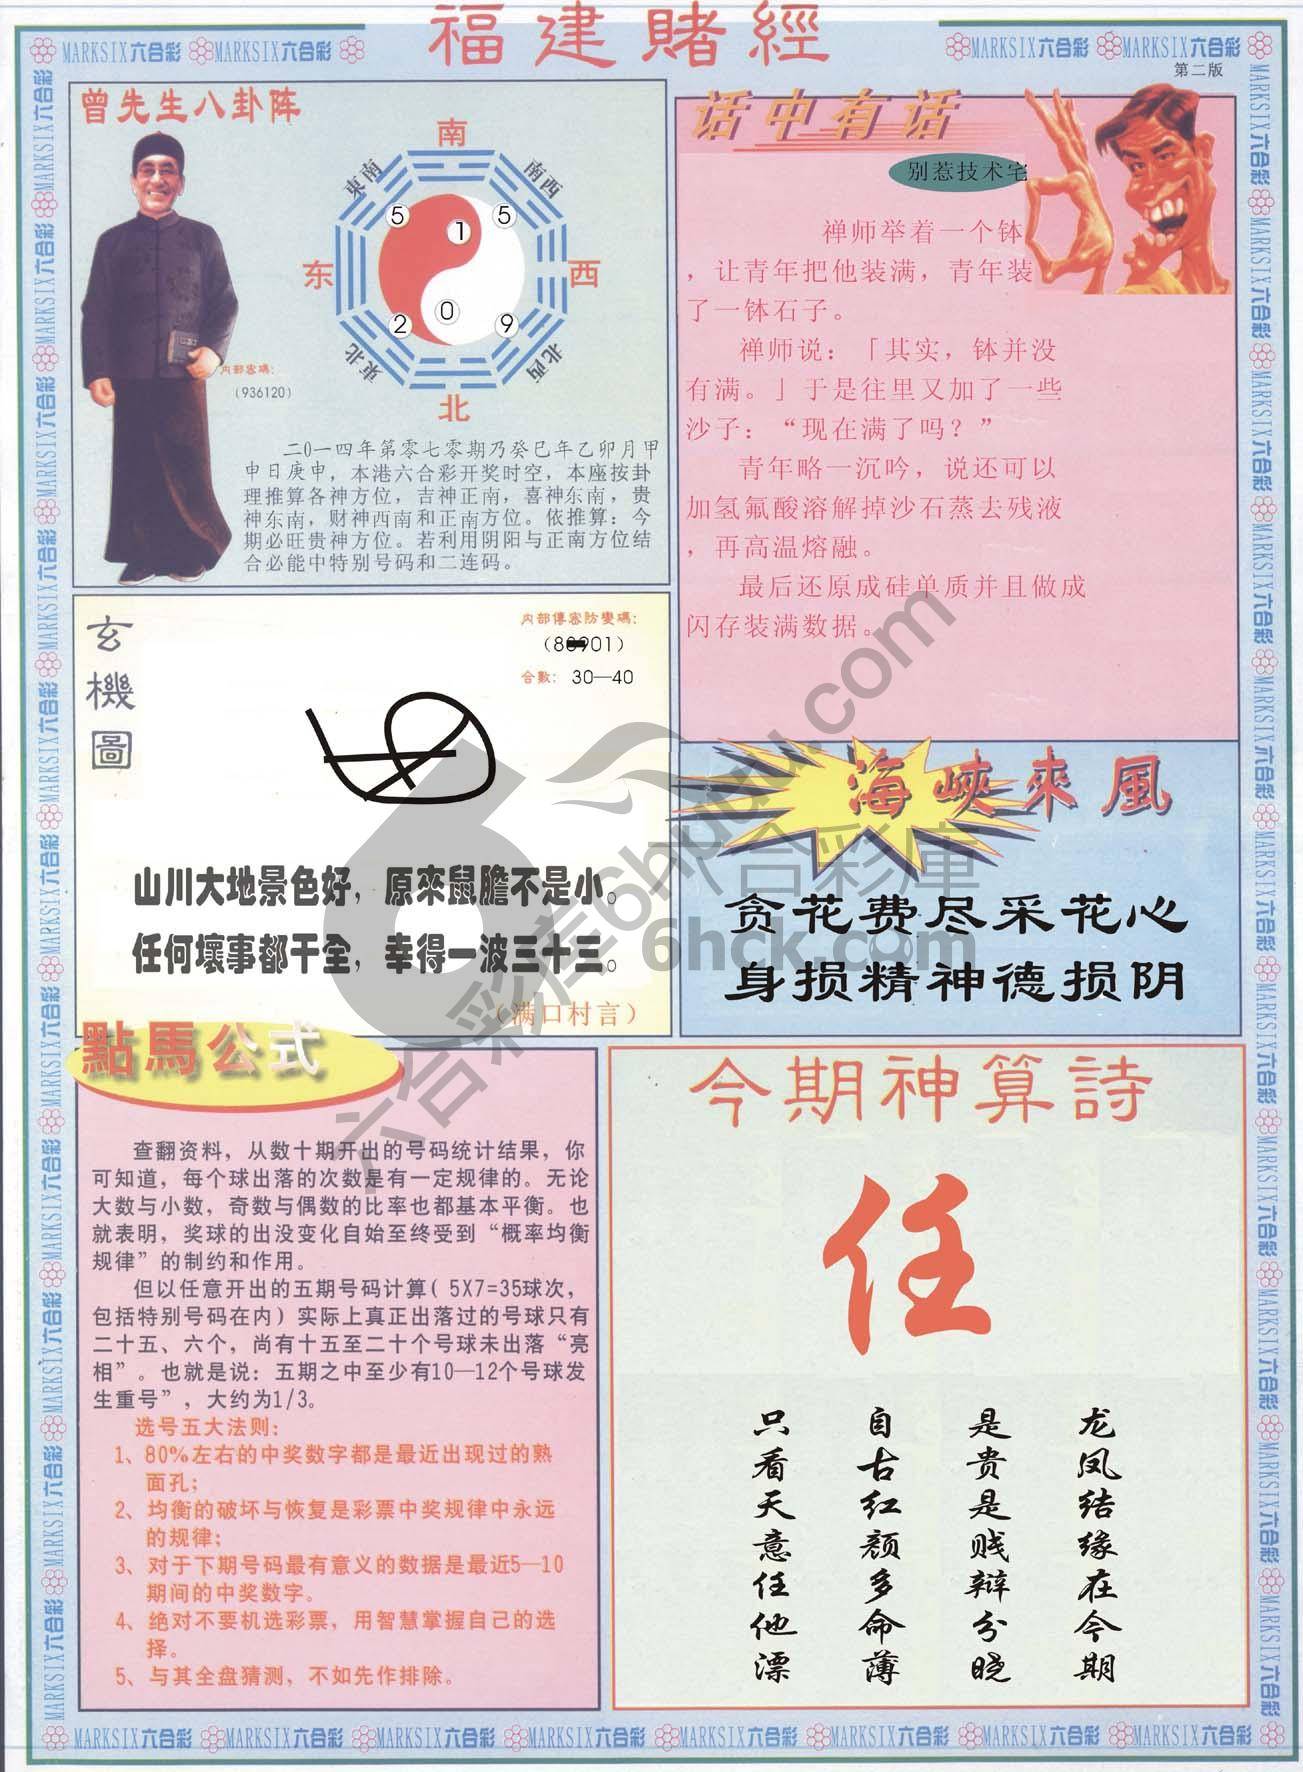 福建賭經
MARKSIX六合彩 MARKSIX六合彩
MARKSIX六合彩 MARKSIX六合彩
第二版
曾先生八卦阵
南
東南
南西
5
1
5
东
西
2
0
9
東北
北西
北
内部密碼：
（936120）
二0一四年第零七零期乃癸巳年乙卯月甲
申日庚申，本港六合彩开奖时空，本座按卦
理推算各神方位，吉神正南，喜神东南，贵
神东南，财神西南和正南方位。依推算：今
期必旺贵神方位。若利用阴阳与正南方位结
合必能中特别号码和二连码。
话中有话
别惹技术宅
禅师举着一个钵
，让青年把他装满，青年装
了一钵石子。
禅师说：「其实，钵并没
有满。」于是往里又加了一些
沙子：“现在满了吗？”
青年略一沉吟，说还可以
加氢氟酸溶解掉沙石蒸去残液
，再高温熔融。
最后还原成硅单质并且做成
闪存装满数据。
玄機圖
内部傳密防變碼：
合數： 30—40
山川大地景色好，原來鼠膽不是小。
任何壞事都干全，幸得一波三十三。
（满口村言）
海峽來風
贪花费尽采花心
身损精神德损阴
六合彩庫
6hck.com
六合彩库6hduku.com
點馬公式
查翻资料，从数十期开出的号码统计结果，你
可知道，每个球出落的次数是有一定规律的。无论
大数与小数，奇数与偶数的比率也都基本平衡。也
就表明，奖球的出没变化自始至终受到“概率均衡
规律”的制约和作用。
但以任意开出的五期号码计算（5X7=35球次，
包括特别号码在内）实际上真正出落过的号球只有
二十五、六个，尚有十五至二十个号球未出落“亮
相”。也就是说：五期之中至少有10—12个号球发
生重号”，大约为1/3。
选号五大法则：
1、80%左右的中奖数字都是最近出现过的熟
面孔；
2、均衡的破坏与恢复是彩票中奖规律中永远
的规律；
3、对于下期号码最有意义的数据是最近5—10
期间的中奖数字。
4、绝对不要机选彩票，用智慧掌握自己的选
择。
5、与其全盘猜测，不如先作排除。
今期神算詩
任
龙凤结缘在今期
是贵是贱辩分晓
自古红颜多命薄
只看天意任他漂
MARKSIX六合彩 MARKSIX六合彩 MARKSIX六合彩 MARKSIX六合彩 MARKSIX六合彩 MARKSIX六合彩 MARKSIX六合彩 MARKSIX六合彩